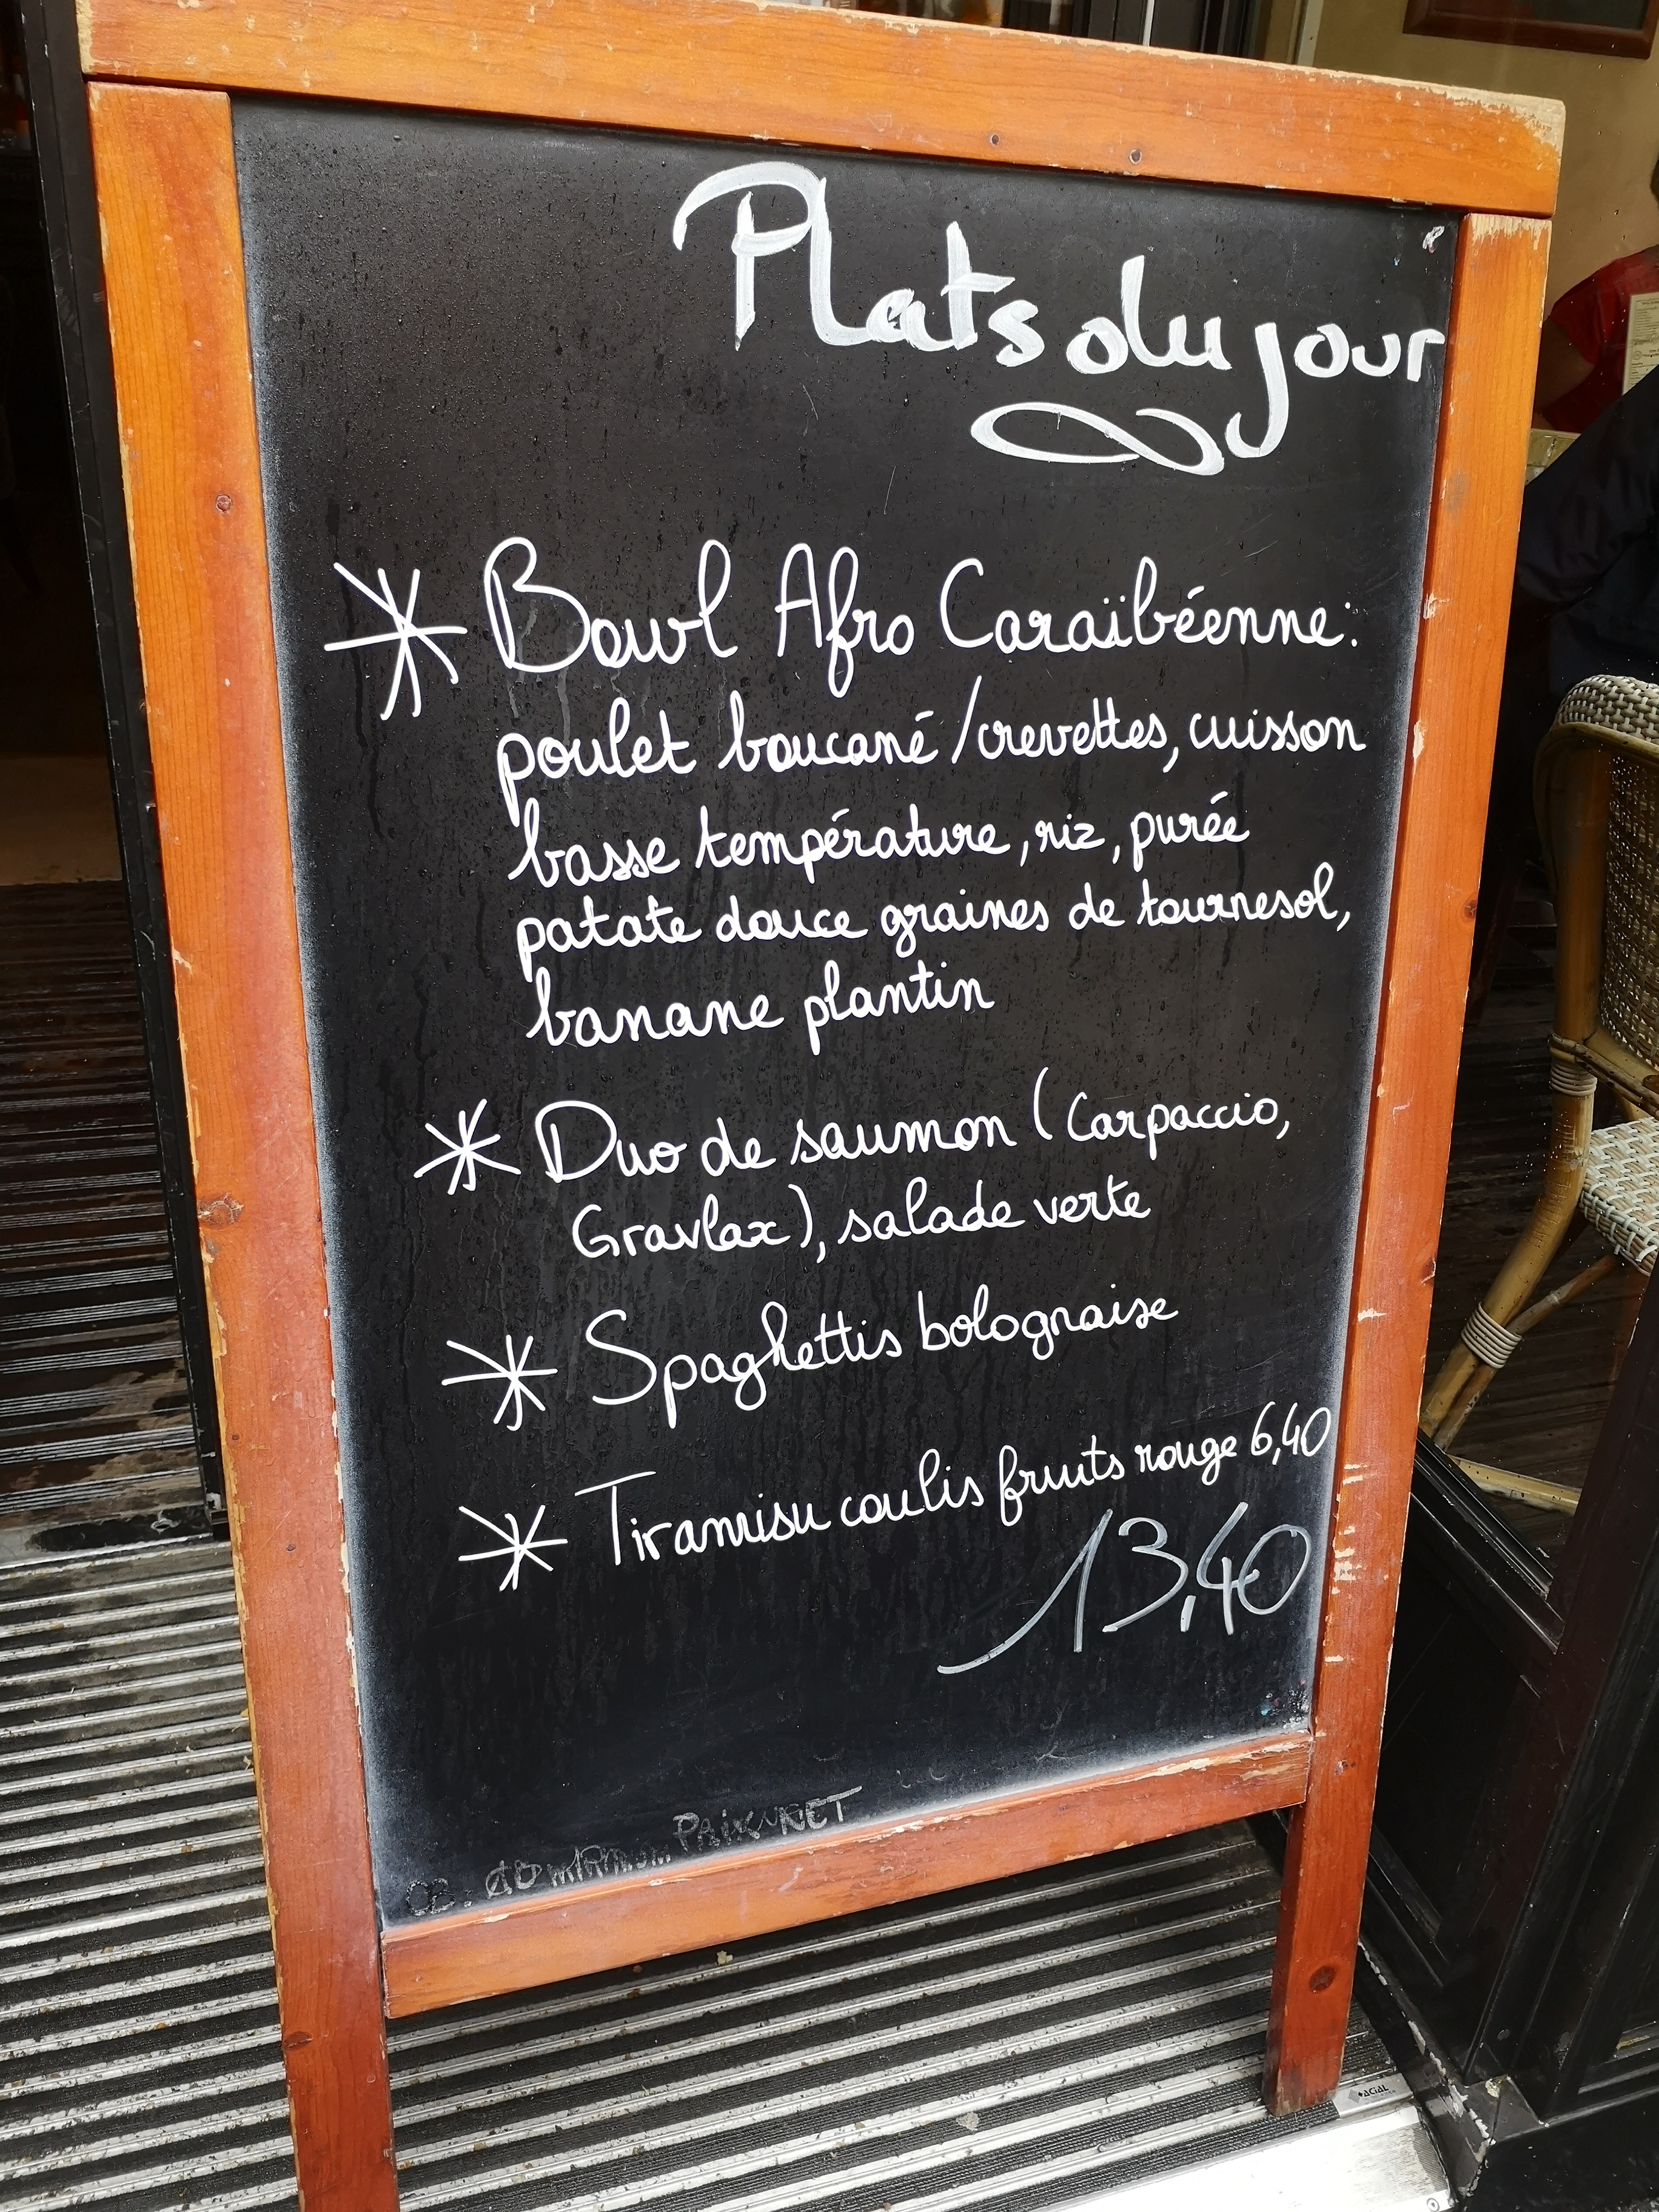 Plats du jour
Bowl Afro Caraïbéenne:
poulet boucané/crevettes, cuisson
basse température, riz, purée
patate douce graines de tournesol,
banane plantin
Duo de saumon (Carpaccio,
Gravlax), salade verte
Spaghettis bolognaise
Tiramisu coulis fruits rouge 6,40
13,40
ACIAL